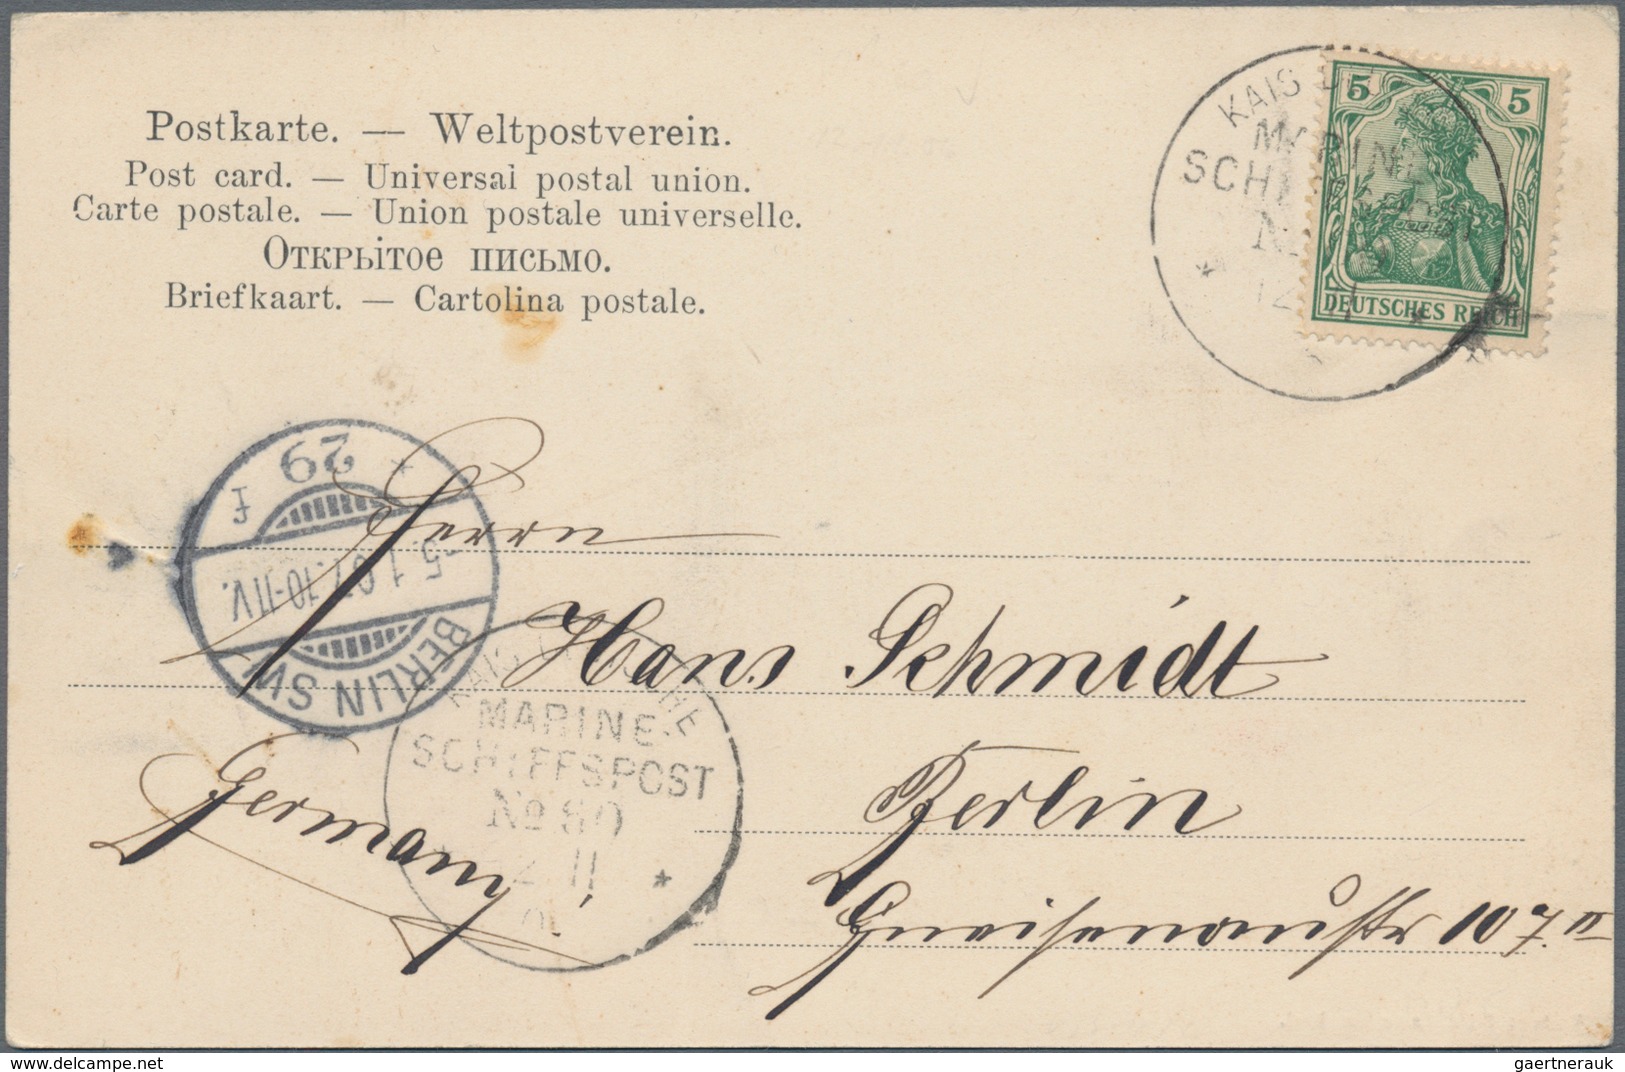 Postkarte. — Weltpostverein.
Post card. — Universal postal union.
Carte postale. — Union postale universelle.
Открытое письмо.
Briefkaart. — Cartolina postale.
KAIS
MARINE
SCHI
5 5
DEUTSCHES REICH
12 11
29
F
5.1.07.10-11V.
BERLIN SW
Herrn
Hans Schmidt
KAIS HE
MARINE
SCHIFFSPOST
No 80
12 11
Germany
Berlin
Gneisenaustr 107 II
gaertnerauk @ delcampe.net